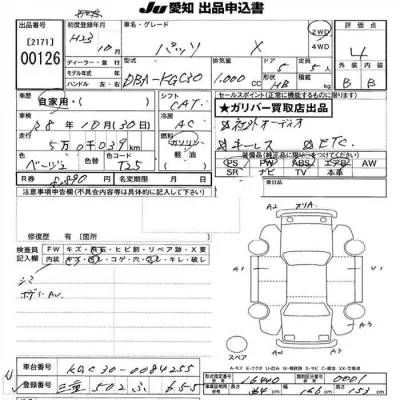 JU 愛知 出品申込書
[2171]
00126
初度登録年月
H23 10月
車名・グレード
パッソ X
2WD
4WD
評価点
4
モデル年式
ディーラー・並行
ハンドル 左・右
型式
DBA-KGC30
排気量
1,000 cc
ドア
5
形状
HB
定員
5
積載量
kg
外装 内装
B B
車歴
自家用・
シフト
CAT
セールスポイント(正常に機能するもの)
★ガリバー買取店出品
車検
28年10月(30日)
冷房
AC
社外オーディオ
走行
5万0千039km
ガソリン
軽油
キーレス ETC
色
ベージュ
色替
色コード
T25
装備品(純正品に限り○をつけてください)
PS PW ABS エアB AW
SR ナビ TV 本革
R券
8,890
名変期限 月 日
注意事項申告欄(不具合内容等は具体的に記入して下さい)
後日品
修復歴 有(箇所)
検査員記入欄
FW キズ・飛石・ヒビ割・リペア跡・X要
内装 コゲ・穴・キレ・破レ
シミ
ボディAU
A2
A1
A1
A2
A3
スペア
A-キズ E-エクボ U-凹み W-補修跡 S-サビ C-腐食 XX-交換済
車台番号
KGC30-0084255
登録番号
三重 502 ふ 655
型式指定番号
16440
類別区分番号
0001
長さ 364cm
幅 166cm
高さ 153cm